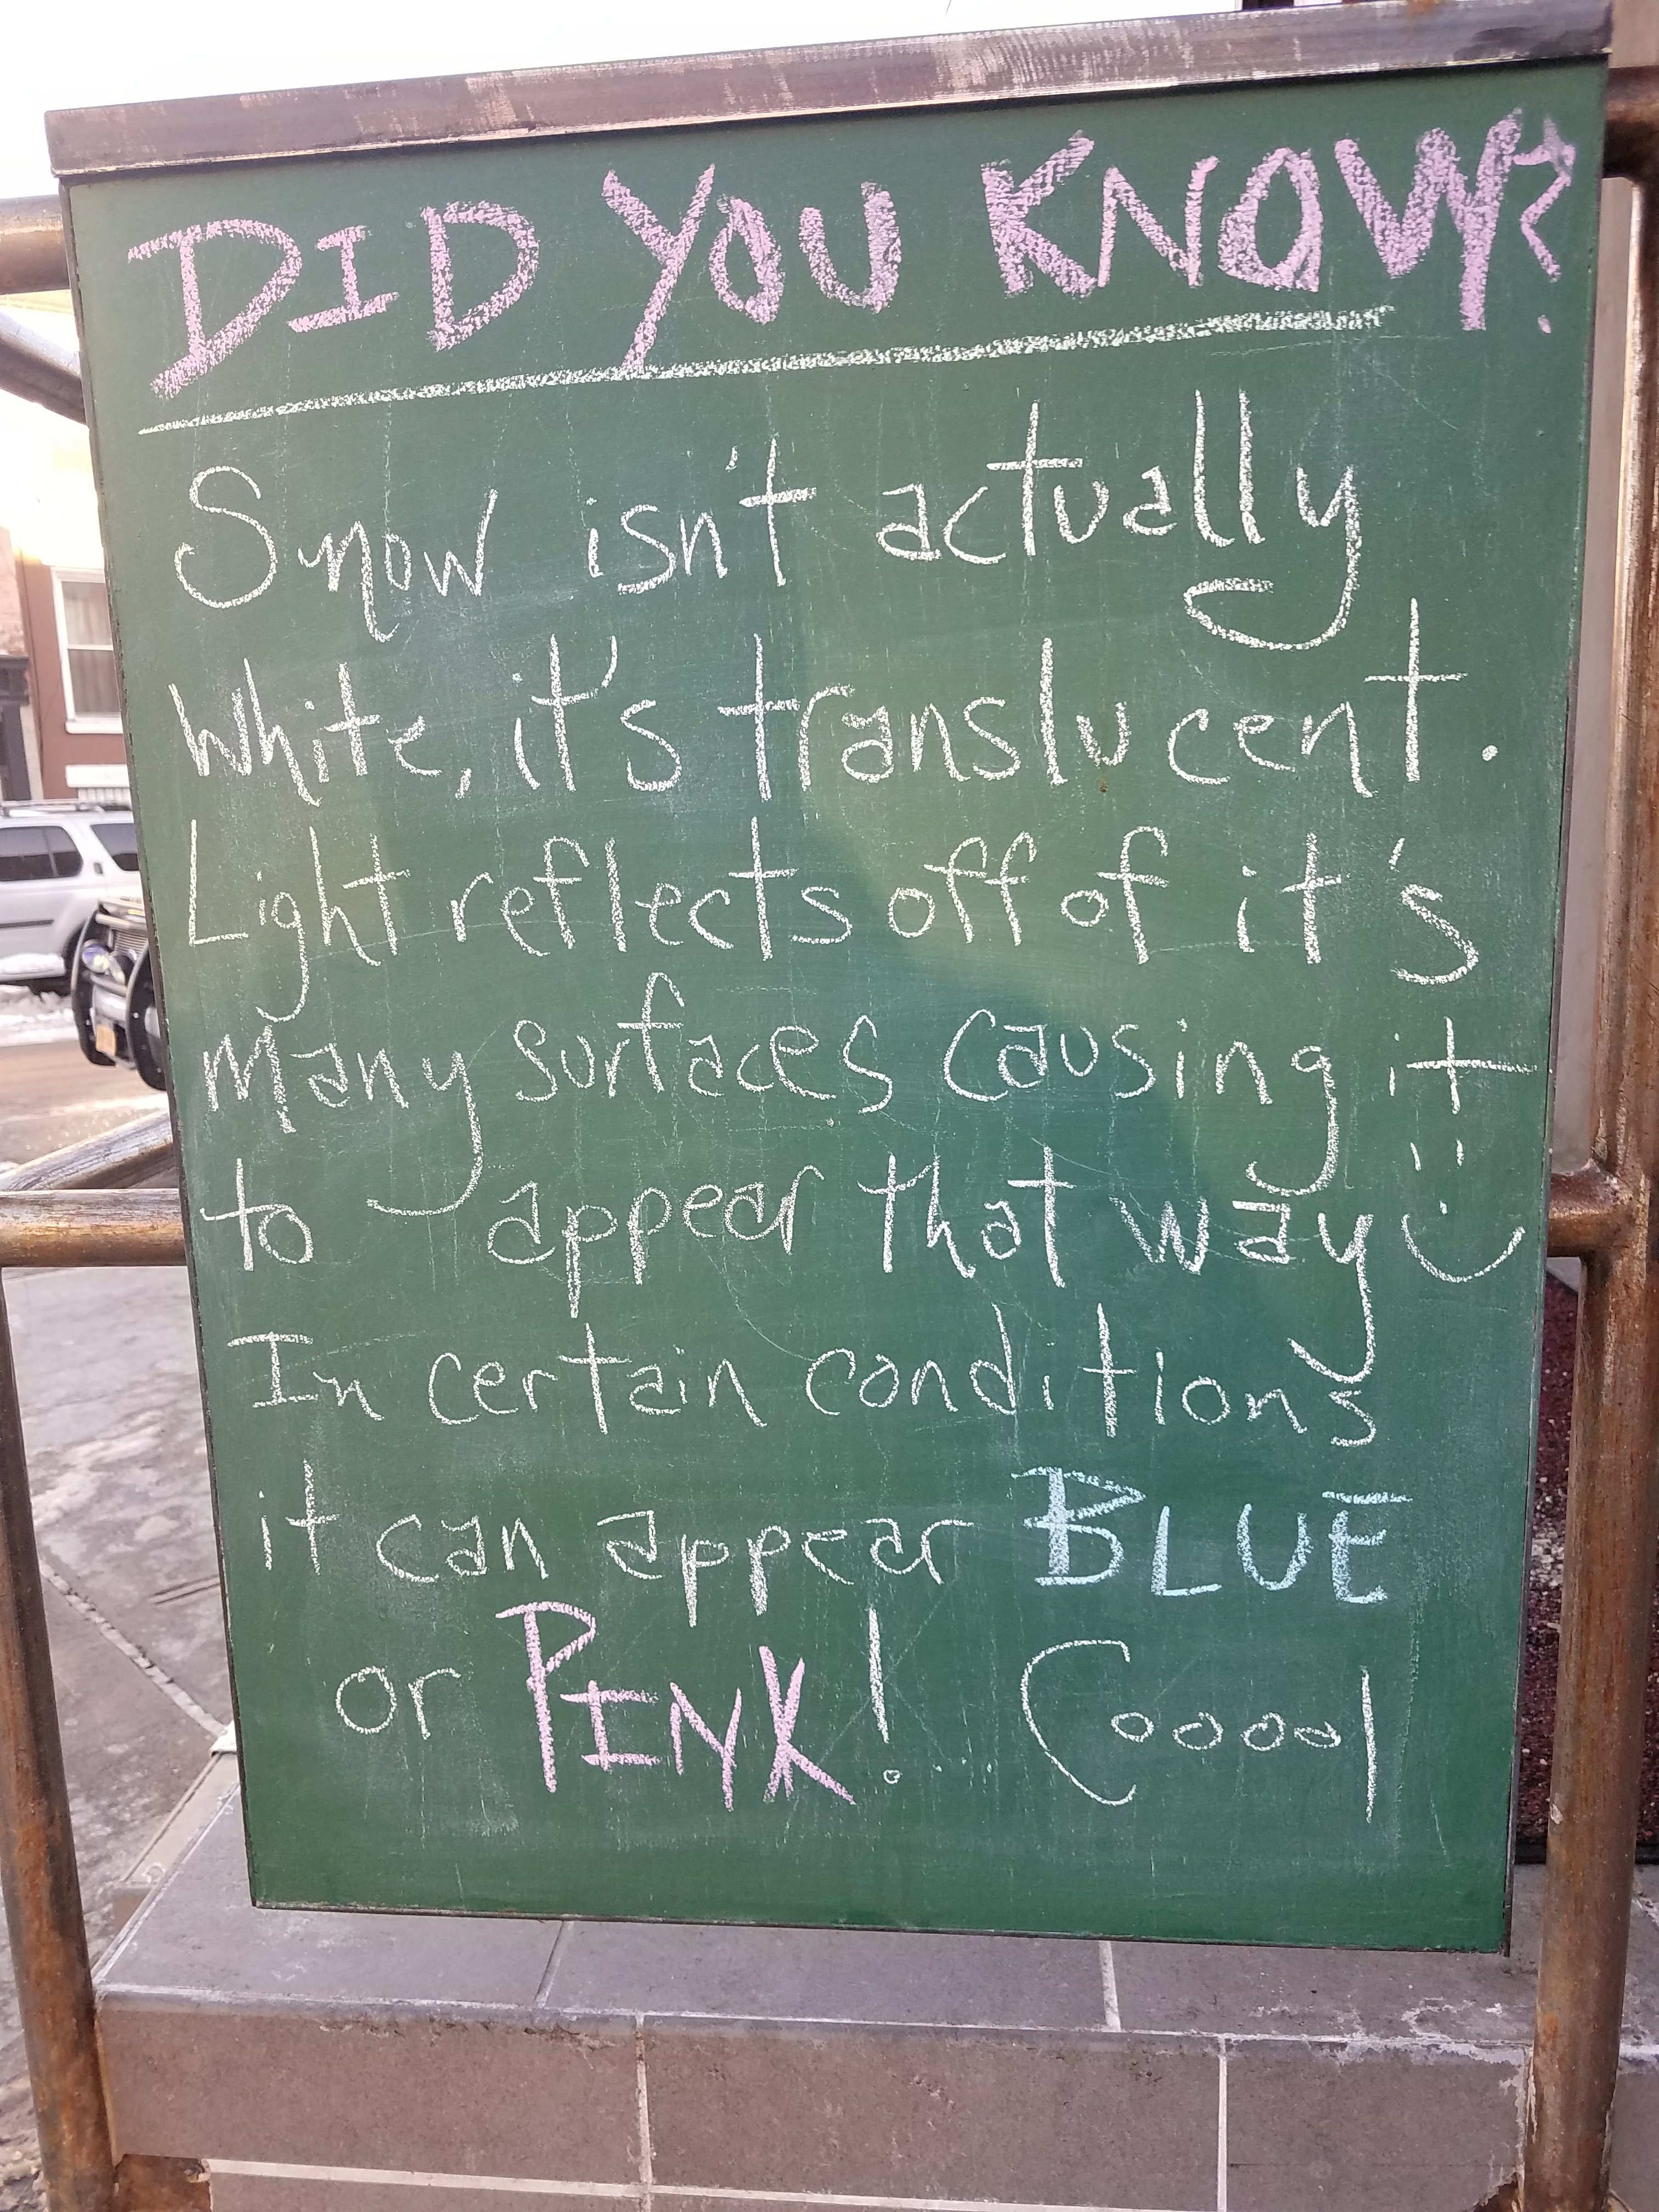 DID YOU KNOW?
Snow isn't actually
white, it's translucent.
Light reflects off of it's
many surfaces causing it
to appear that way :)
In certain conditions
it can appear BLUE
or PINK! ... Cooool